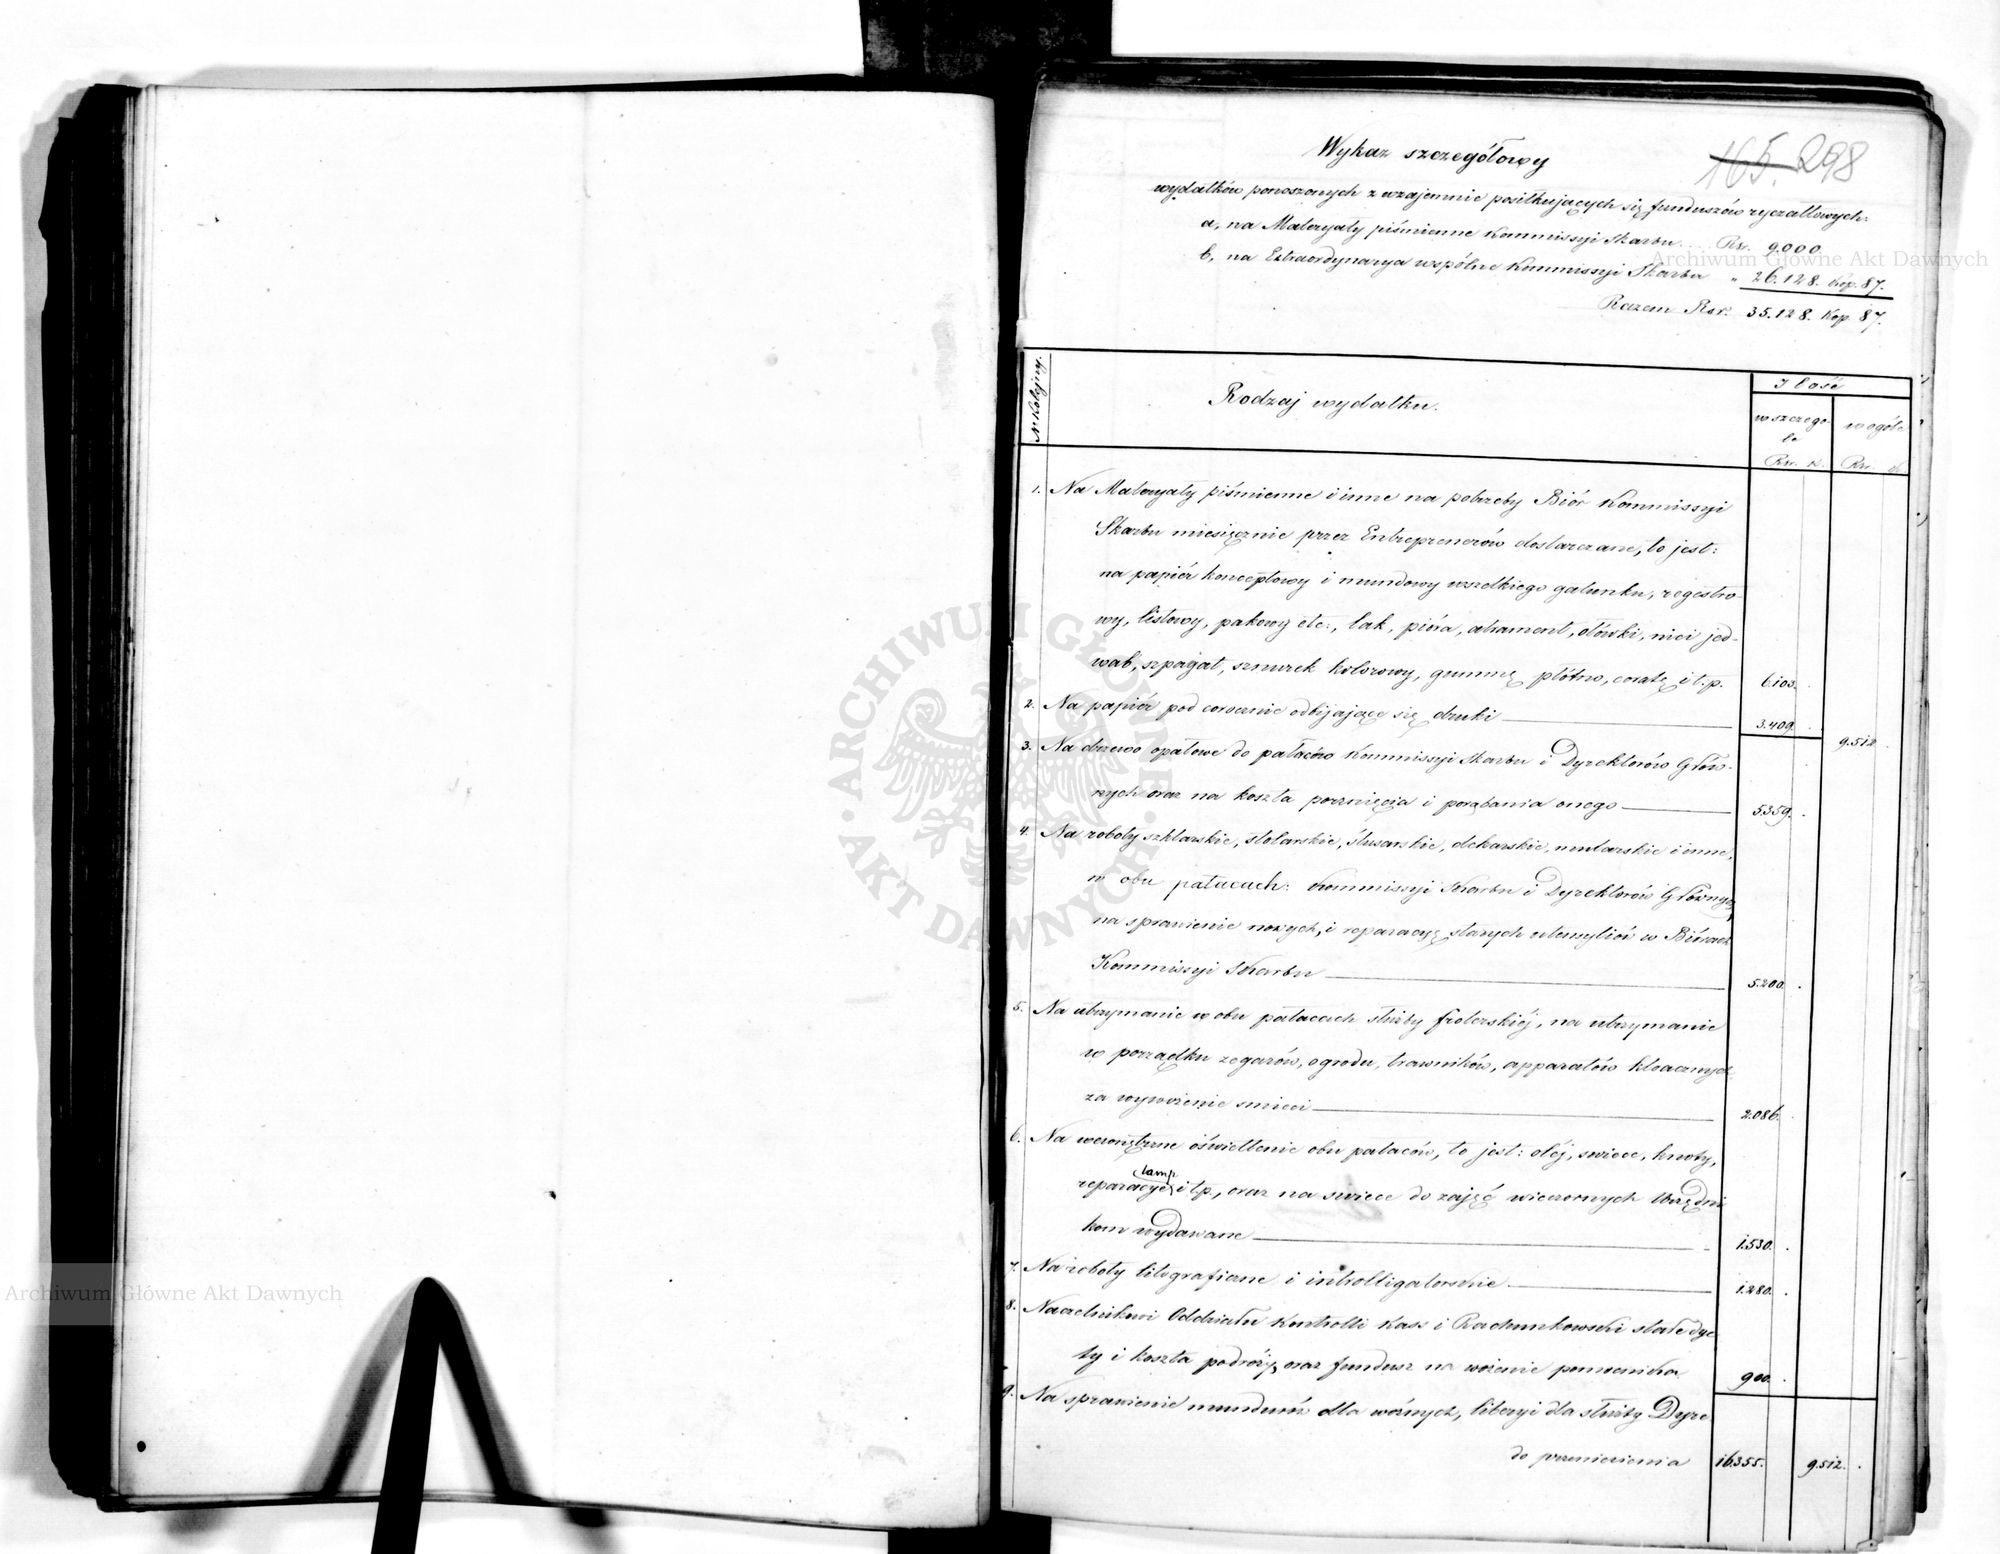 165. 298
Wykaz szczegółowy
wydatków ponoszonych z wzajemnie posiłkujących się funduszów ryczałtowych:
a, na Materyały piśmienne Kommissyi Skarbu... Rsr. 9.000.
b, na Extraordynarya wspólne Kommissyi Skarbu " 26.128. Kop. 87.
Razem Rsr. 35.128. Kop. 87.
Nr Kolejny.
Rodzaj wydatku.
Ilość
w szczególe
w ogóle
Rsr. k. Rsr. k.
1. Na Materyały piśmienne i inne na potrzeby Biór Kommissyi
Skarbu miesięcznie przez Entreprenerów dostarczane, to jest:
na papiér konceptowy i mundowy wszelkiego gatunku, regestro-
wy, listowy, pakowy etc., lak, pióra, atrament, ołówki, nici jed-
wab, szpagat, sznurek kolorowy, gummę, płótno, ceratę i t. p. 6.103.
2. Na papiér pod corocznie odbijające się druki 3.409.
9.512
3. Na drzewo opałowe do pałaców Kommissyi Skarbu i Dyrektorów Głów-
nych oraz na koszta porznięcia i porąbania onego 5.359.
4. Na roboty szklarskie, stolarskie, ślusarskie, dekarskie, mularskie i inne,
w obu pałacach: Kommissyi Skarbu i Dyrektorów Głównych,
na sprawienie nowych, i reparacyę starych utensyliów w Biórach
Kommissyi Skarbu 5.200.
5. Na utrzymanie w obu pałacach służby froterskiéj, na utrzymanie
w porządku zegarów, ogrodu, trawników, apparatów kloacznych,
za wywożenie smieci 2.086.
6. Na wewnętrzne oświetlenie obu pałaców, to jest: oléj, swiece, knoty,
lamp
reparacye i t.p., oraz na swiece do zajęć wieczornych Urzędni
kom wydawane 1.530.
7. Na roboty litograficzne i introlligatorskie 1.280.
8. Naczelnikowi Oddziału Kontrolli Kass i Rachunkowości stałe dye
ty i koszta podróży, oraz fundusz na pomocnika 900.
9. Na sprawienie mundurów dla woźnych, liberyi dla służby Dyre
do przeniesienia 16.355. 9.512.
Archiwum Główne Akt Dawnych
Archiwum Główne Akt Dawnych
· ARCHIWUM GŁÓWNE · AKT DAWNYCH